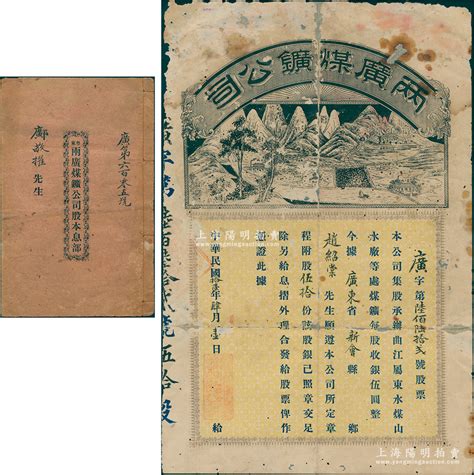 廣第六百叁五號
兩廣煤鑛公司股本息部
鄺敬權先生
兩廣煤鑛公司
廣字第陸佰陸拾弍號股票
本公司集股承辦曲江屬東水煤山
永廠等處煤鑛每股收銀伍圓整
今據廣東省新會縣鄉
趙紹棠先生願遵本公司所定章
程附股伍拾份該股銀已照章交足
除另給息摺外理合發給股票俾作
憑證此據
中華民國年肆月壹日給
字第陸百陸拾弍號伍拾股
上海陽明拍賣
www.yangmingauction.com